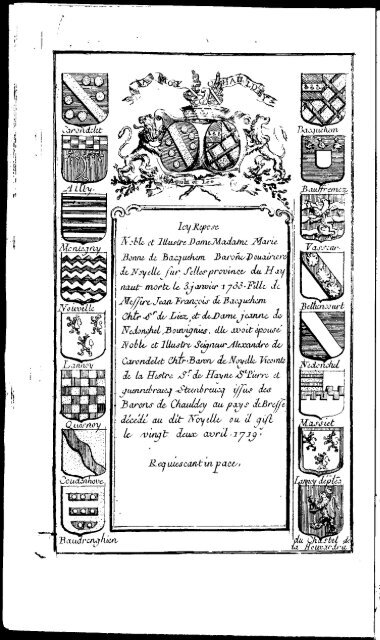 Carondelet
Ailly
Montigny
Nouvelle
Lannoy
Quesnoy
Coudenhove
Baudrenghien
Icy Repose
Noble et Illustre Dame Madame Marie
Bonne de Bacquehem Baronne Douairiere
de Noyelle sur Selles province du Hay
naut morte le 3 janvier 1733. Fille de
Messire Jean François de Bacquehem
Chlr. Sr. de Liez, et de Dame jeanne de
Nedonchel, Bouvignies, elle avoit épousé
Noble et Illustre Seigneur Alexandre de
Carondelet Chlr. Baron de Noyelle Vicomte
de la Hestre Sr. de Hayne St. Pierre et
Steenbreucq issus des
Barons de Chauldey au pays de Bresse
décédé au dit Noyelle ou il gist
le vingt deux avril 1719.
Requiescant in pace.
Bacquehem
Baufremez
Vasseur
Bettencourt
Nedonchel
Massiet
Lannoy
du Chastel de
la Houvardrie